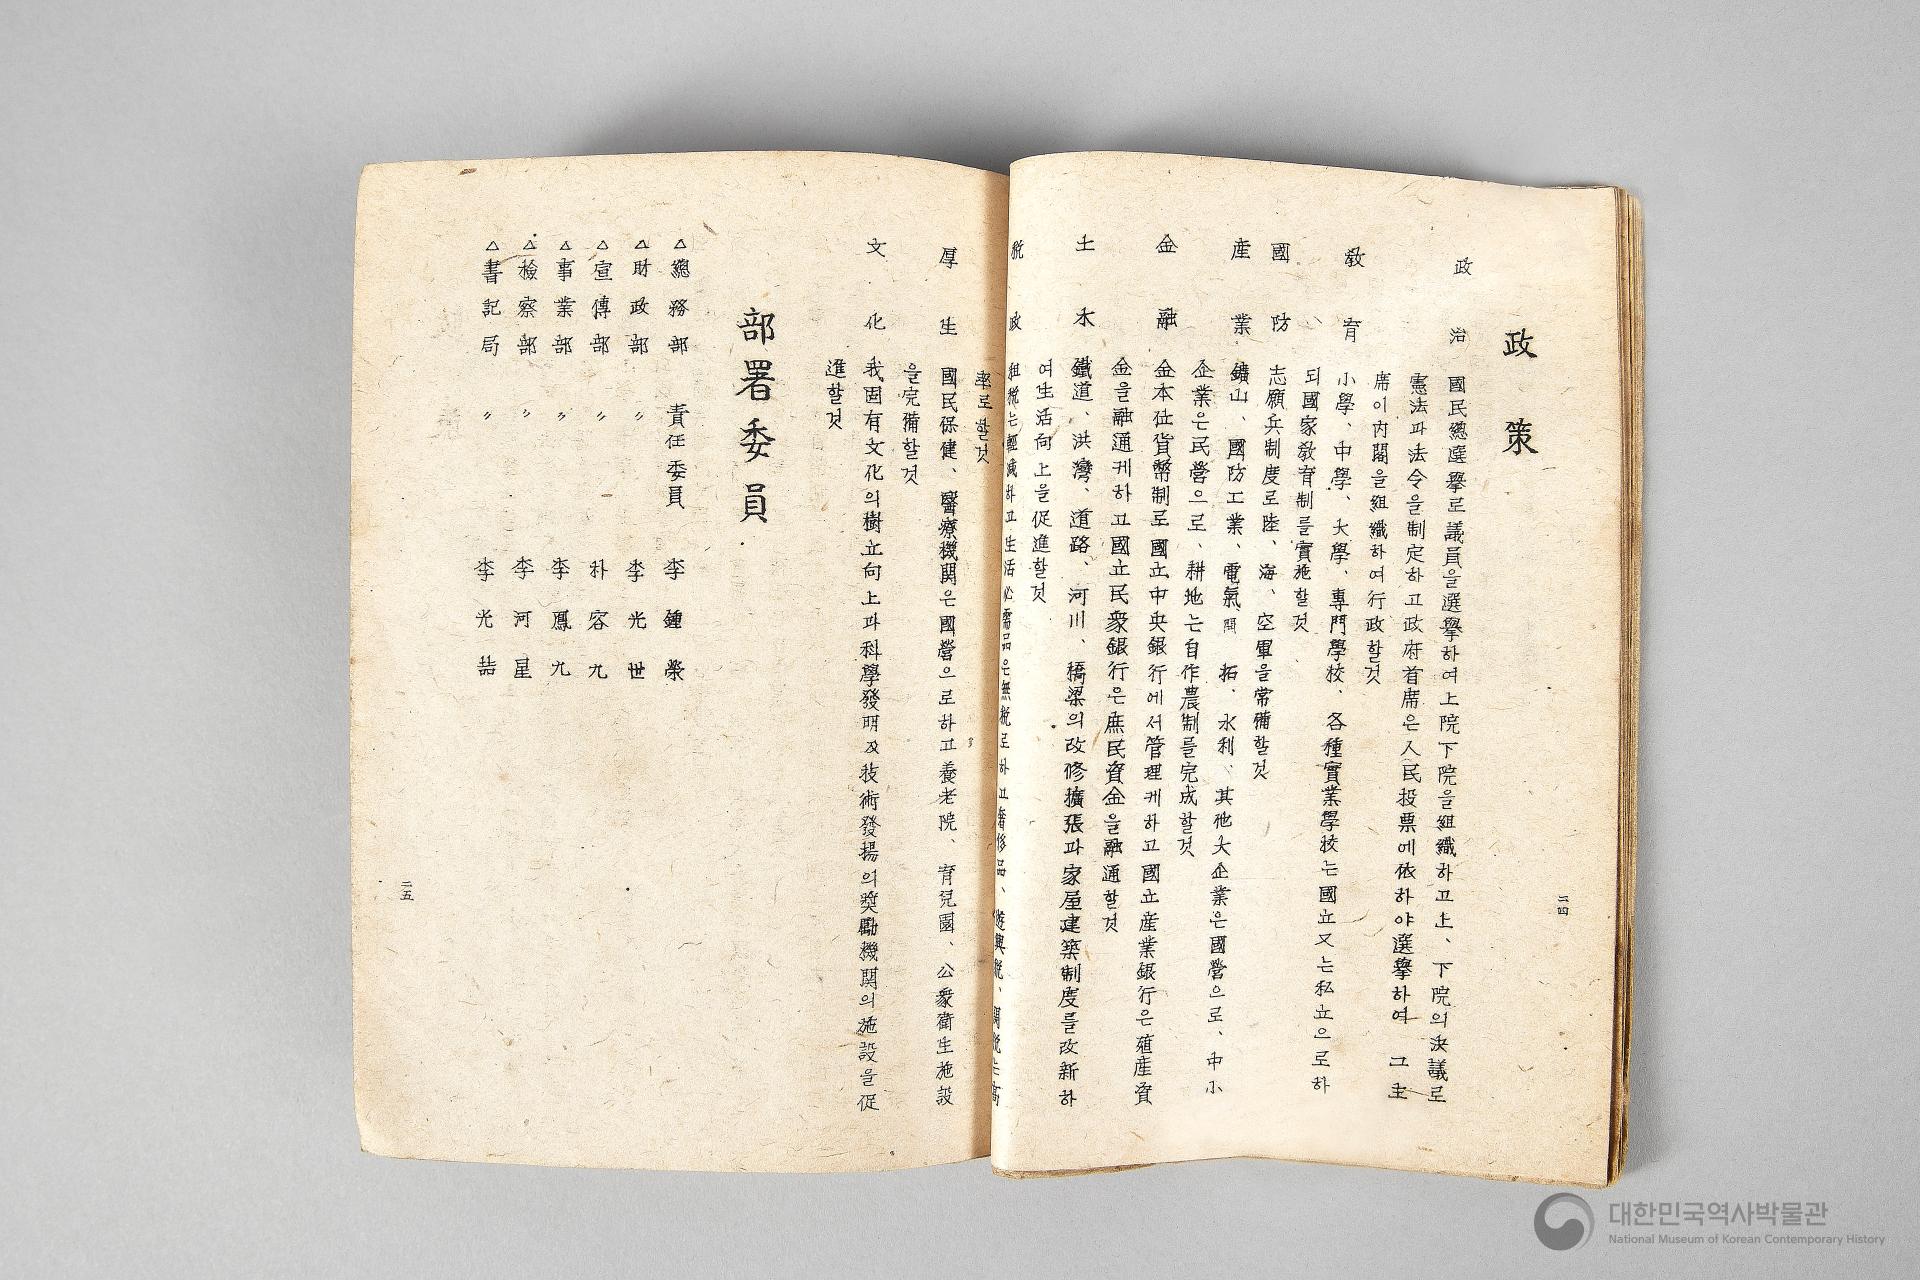 政策
政治 國民總選擧로議員을選擧하여上院下院을組織하고上、下院의決議로
憲法과法令을制定하고政府首席은人民投票에依하야選擧하여 그主
席이內閣을組織하여行政할것
敎育 小學、中學、大學、專門學校、各種實業學校는國立又는私立으로하
되國家敎育制를實施할것
國防 志願兵制度로陸、海、空軍을常備할것
産業 鑛山、國防工業、電氣、開拓、水利、其他大企業은國營으로、中小
企業은民營으로、耕地는自作農制를完成할것
金融 金本位貨幣制로國立中央銀行에서管理케하고國立産業銀行은殖産資
金을融通케하고國立民衆銀行은庶民資金을融通할것
土木 鐵道、洪灣、道路、河川、橋梁의改修擴張과家屋建築制度를改新하
여生活向上을促進할것
稅政 租稅는輕減하고生活必需品은無稅로하고奢侈品、遊興稅、關稅는高
二四
率로할것
厚生 國民保健、醫療機関은國營으로하고養老院、育兒園、公衆衛生施設
을完備할것
文化 我固有文化의樹立向上과科學發明及技術發揚의奬勵機関의施設을促
進할것
部署委員
△總務部 責任委員 李鍾榮
△財政部 〃 李光世
△宣傳部 〃 朴容九
△事業部 〃 李鳳九
△檢察部 〃 李河星
△書記局 〃 李光喆
二五
대한민국역사박물관
National Museum of Korean Contemporary History